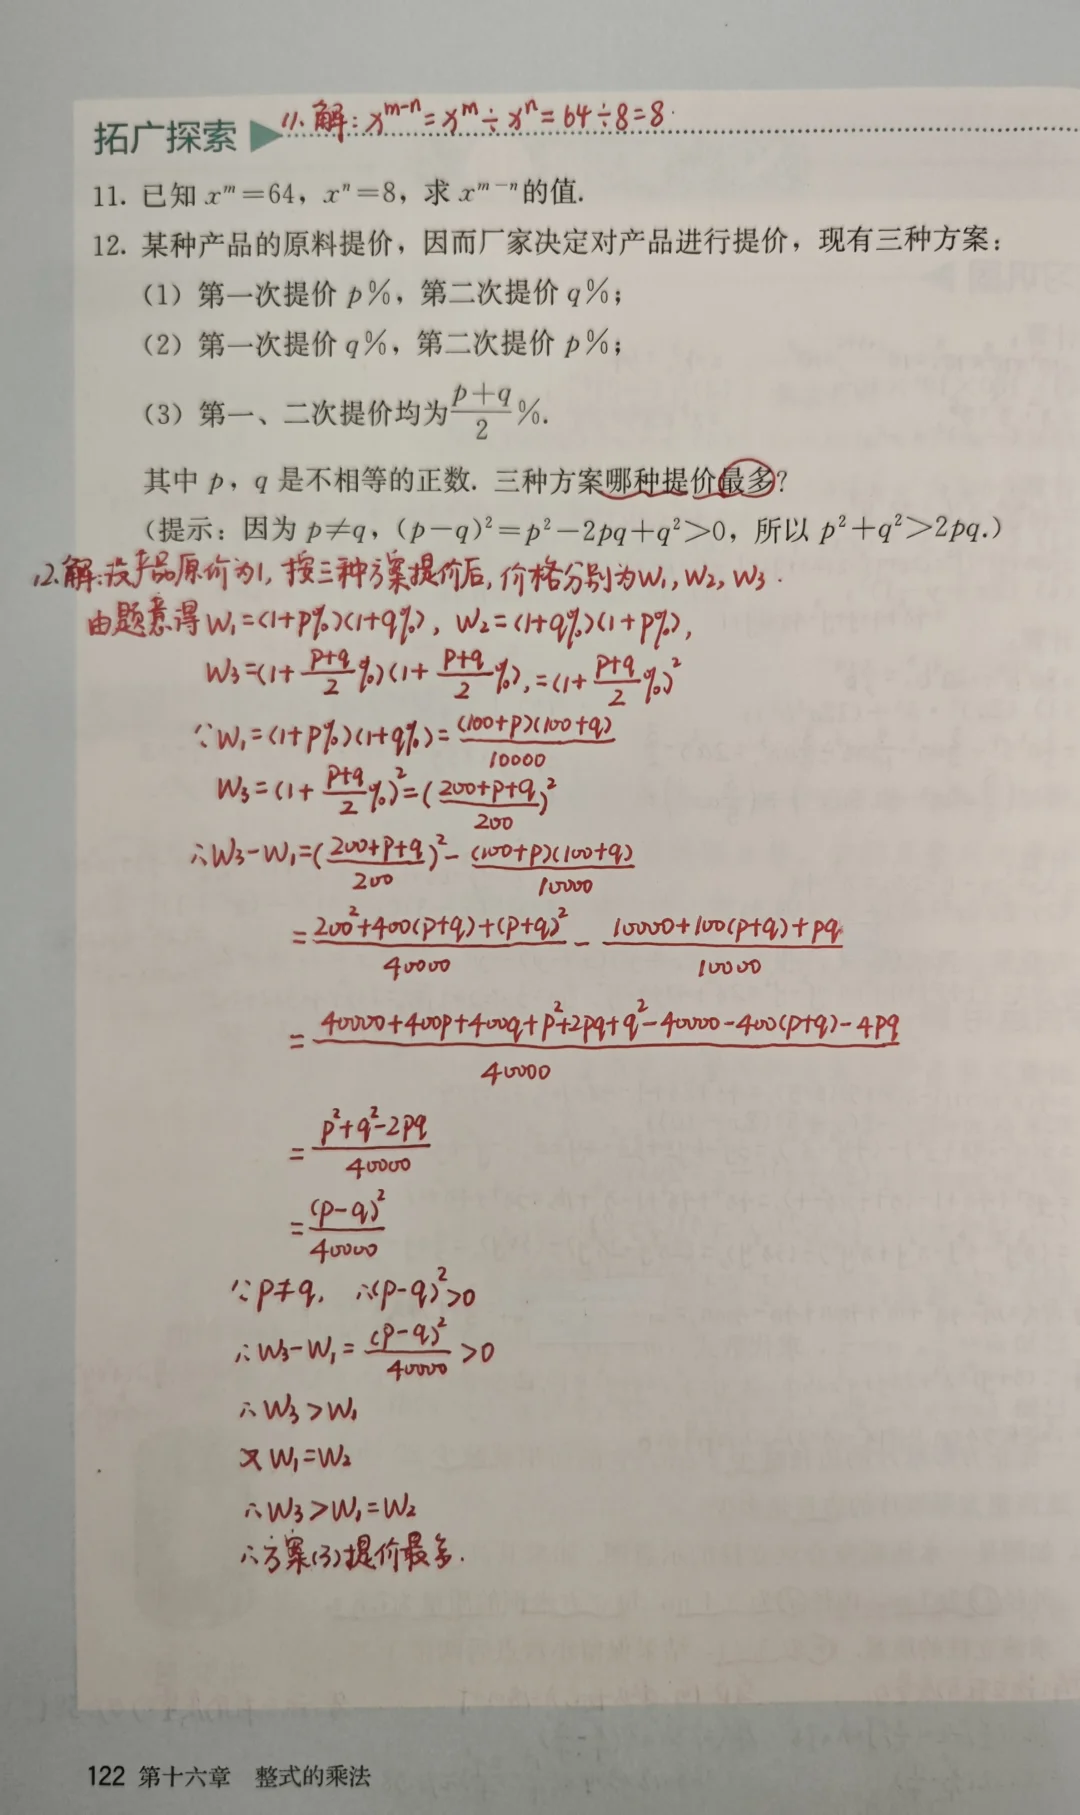 拓广探索 ▶ 11. 解: x^{m-n} = x^m ÷ x^n = 64÷8 = 8.
11. 已知 x^m=64, x^n=8, 求 x^{m-n} 的值.
12. 某种产品的原料提价, 因而厂家决定对产品进行提价, 现有三种方案:
(1) 第一次提价 p%, 第二次提价 q%;
(2) 第一次提价 q%, 第二次提价 p%;
(3) 第一、二次提价均为 \frac{p+q}{2}%.
其中 p, q 是不相等的正数. 三种方案哪种提价最多?
(提示: 因为 p≠q, (p-q)²=p²-2pq+q²>0, 所以 p²+q²>2pq.)
12.解:设产品原价为1, 按三种方案提价后, 价格分别为W₁, W₂, W₃.
由题意得 W₁=(1+p%)(1+q%), W₂=(1+q%)(1+p%),
W₃=(1+\frac{p+q}{2}%)(1+\frac{p+q}{2}%),=(1+\frac{p+q}{2}%)²
∵W₁=(1+p%)(1+q%)=\frac{(100+p)(100+q)}{10000}
W₃=(1+\frac{p+q}{2}%)²=(\frac{200+p+q}{200})²
∴W₃-W₁=(\frac{200+p+q}{200})²-\frac{(100+p)(100+q)}{10000}
=\frac{200²+400(p+q)+(p+q)²}{40000}-\frac{10000+100(p+q)+pq}{10000}
=\frac{40000+400p+400q+p²+2pq+q²-40000-400(p+q)-4pq}{40000}
=\frac{p²+q²-2pq}{40000}
=\frac{(p-q)²}{40000}
∵p≠q, ∴(p-q)²>0
∴W₃-W₁=\frac{(p-q)²}{40000}>0
∴W₃>W₁
又W₁=W₂
∴W₃>W₁=W₂
∴方案(3)提价最多.
122 第十六章 整式的乘法